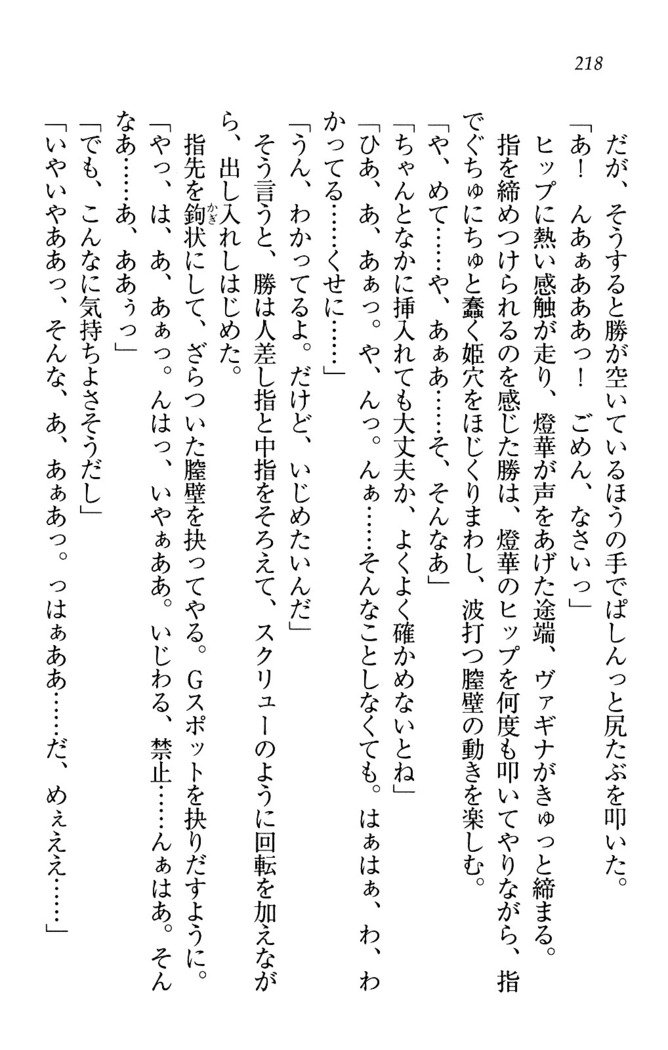 218
だが、そうすると勝が空いているほうの手でぱしんっと尻たぶを叩いた。
「あ！　んあぁあああっ！　ごめん、なさいっ」
ヒップに熱い感触が走り、燈華が声をあげた途端、ヴァギナがきゅっと締まる。
指を締めつけられるのを感じた勝は、燈華のヒップを何度も叩いてやりながら、指
でぐちゅにちゅと蠢く姫穴をほじくりまわし、波打つ膣壁の動きを楽しむ。
「や、めて……や、あぁあ……そ、そんなあ」
「ちゃんとなかに挿入れても大丈夫か、よくよく確かめないとね」
「ひあ、あ、あぁっ。や、んっ。んぁ……そんなことしなくても。はぁはぁ、わ、わ
かってる……くせに……」
「うん、わかってるよ。だけど、いじめたいんだ」
そう言うと、勝は人差し指と中指をそろえて、スクリューのように回転を加えなが
ら、出し入れしはじめた。
指先を鉤状にして、ざらついた膣壁を抉ってやる。Gスポットを抉りだすように。
「やっ、は、あ、あぁっ。んはっ、いやぁああ。いじわる、禁止……んぁはあ。そん
なあ……あ、ああぅっ」
「でも、こんなに気持ちよさそうだし」
「いやいやああっ、そんな、あ、あぁあっ。っはぁああ……だ、めぇええ……」